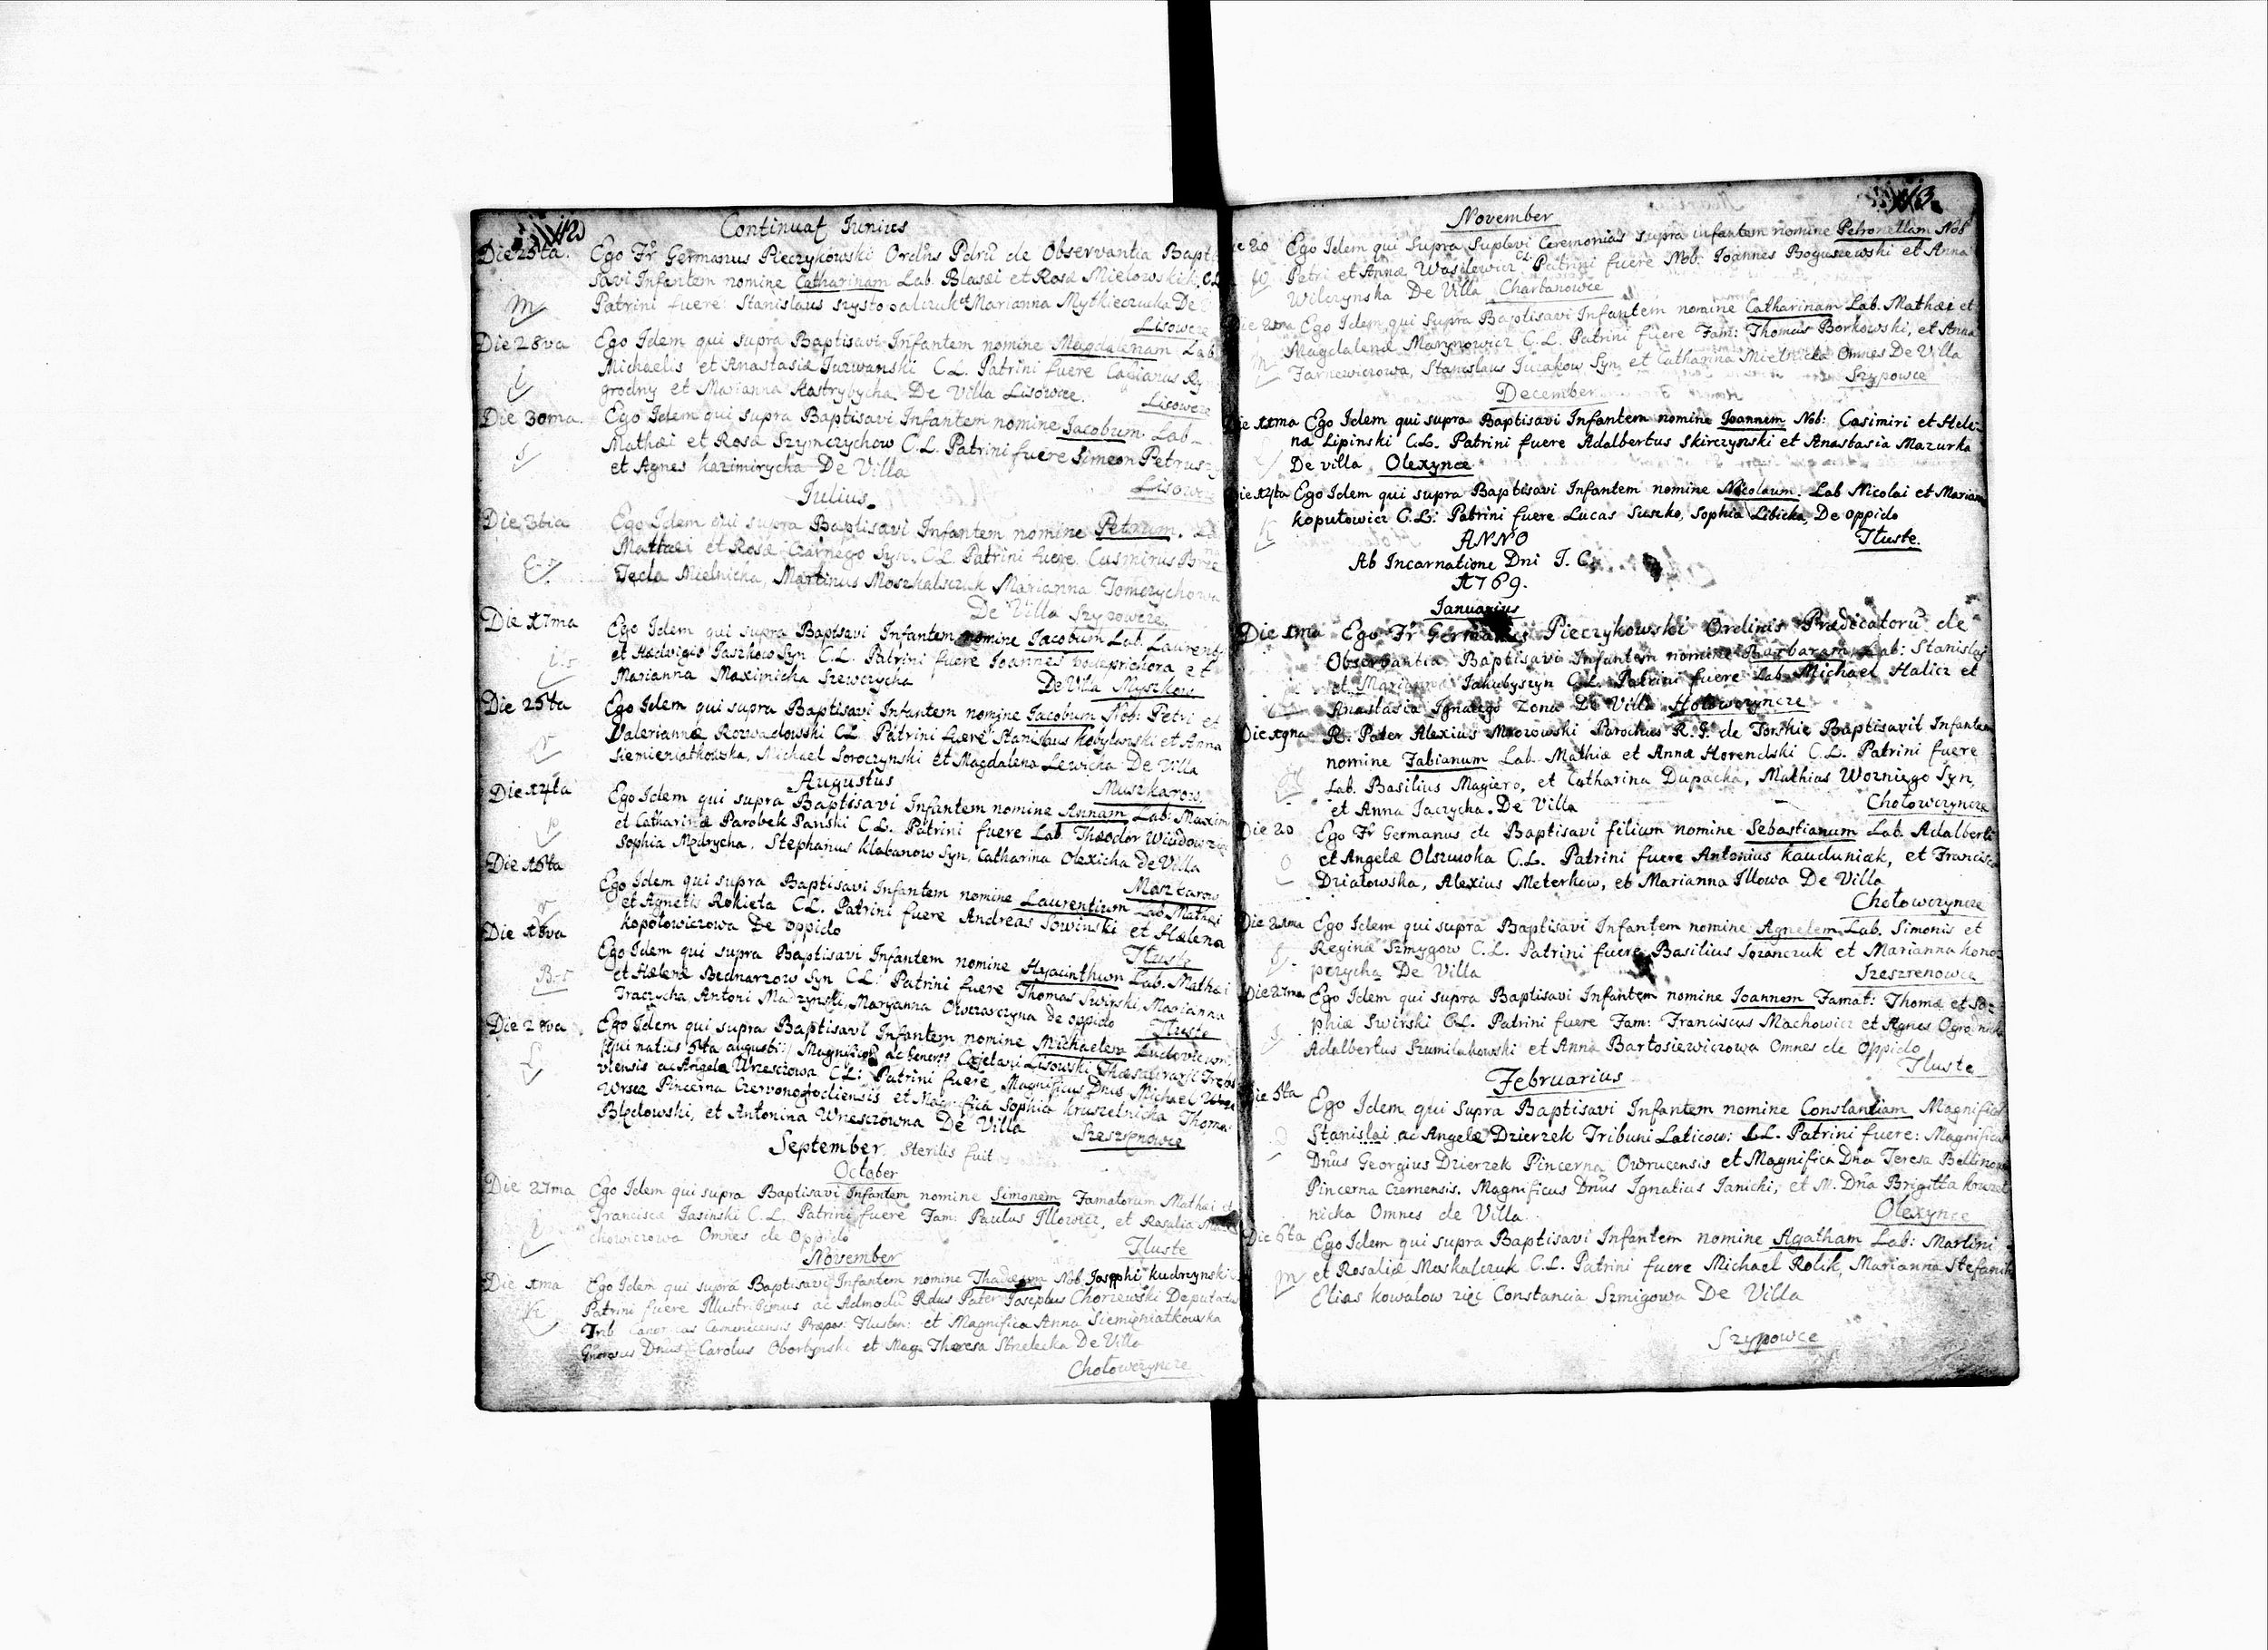 112
Continuat Iunius
Die 25ta. Ego Fr Germanus Pieczykowski Ordīns Pdrū de Observantia Bapti
savi Infantem nomine Catharinam Lab. Blasæi et Rosæ Mielowskich, CL
Patrini fuere Stanislaus et Marianna Mytkieczucka De
Lisowce
Die 28va Ego Idem qui supra Baptisavi Infantem nomine Magdalenam Lab
Michaelis et Anastasiæ Juzwanski C.L. Patrini fuere
grodny et Marianna Kastrybycha De Villa Lisowce.
Lisowce
Die 30ma. Ego Idem qui supra Baptisavi Infantem nomine Iacobum. Lab
Mathæi et Rosæ Szymczychow C.L. Patrini fuere Simeon Petrus
et Agnes Kazimirycha De Villa
Lisowce
Iulius.
Die 3tia Ego Idem qui supra Baptisavi Infantem nomine Petrum.
Mattæi et Rosæ Czarnego Syn. C.L. Patrini fuere Casmirus
Tecla Mielnicka, Martinus Moszkalszuk Marianna Tomczychowa
De Villa Szypowce
Die 17ma Ego Idem qui supra Baptisavi Infantem nomine Iacobum Lab. Laurenti
et Hædvigis Jaszkow Syn C.L. Patrini fuere Ioannes et
Marianna Maximicha Szewczycha De Villa Myszkow
Die 25ta Ego Idem qui supra Baptisavi Infantem nomine Iacobum Nob: Petri et
Valeriannæ Rozwadowski C.L. Patrini fuere Stanislaus Kobylanski et Anna
Siemieniatkowska, Michael Soroczynski et Magdalena Lewicka De Villa
Muszkarow
Augustus
Die 14ta Ego Idem qui supra Baptisavi Infantem nomine Annam Lab: Maxim
et Catharinæ Parobek Panski C.L. Patrini fuere Lab. Thæodor
Sophia Mędrycha, Stephanus Klabanow Syn, Catharina Olexicha De Villa
Muszkarow
Die 16ta Ego Idem qui supra Baptisavi Infantem nomine Laurentium Lab Mathæi
et Agnetis Rokieta C.L. Patrini fuere Andreas Sowinski et Hælena
Kopotowiczowa De oppido
Tłuste
Die 18va Ego Idem qui supra Baptisavi Infantem nomine Hyacinthum Lab. Mathæi
et Hælenæ Bednarzow Syn C.L: Patrini fuere Thomas Swirski, Marianna
Traczycha, Antoni Madzynski, Maryanna Owczarczyna de oppido
Tłuste
Die 28va Ego Idem qui supra Baptisavi Infantem nomine Michaelem Ludovicum,
(qui natus 5ta augusti) Magnifici ac Generi Cajetani Lisowski Thæsaurarii
viensis ac Angelæ Wrzeszowa C.L: Patrini fuere, Magnificus Dnus Michael
Wrsza Pincerna Czerwonogrodiensis et Magnifica Sophia Kruszelnicka Thoma
Błędowski, et Antonina Wrzeszówna De Villa
Szeszenowce
September Sterilis fuit
October
Die 27ma Ego Idem qui supra Baptisavi Infantem nomine Simonem Famatorum Mathæi et
Franciscæ Jasinski C.L. Patrini fuere Fam: Paulus Illowicz, et Rosalia
chowiczowa Omnes de Oppido
Tłuste
November
Die 1ma Ego Idem qui supra Baptisavi Infantem nomine Thadæum Nob. Josephi Kudrzynski
Patrini fuere Illustrissimus ac Admodū Rdus Pater Josephus Chorzewski Deputatus
Trib. Canonicus Camenecensis Præpos: Tlusten: et Magnifica Anna Siemieniatkowska
Generosus Dnus Carolus Obortynski et Mag. Theresa Strzelecka De Villa
Chołowczynce
113
November
Die 20 Ego Idem qui Supra Suplevi Ceremonias supra infantem nomine Petronellam Nob
Petri et Annæ Wasilewicz C.L. Patrini fuere Nob: Ioannes Boguszewski et Anna
Wilczynska De Villa Charbanowce
Ego Idem qui Supra Baptisavi Infantem nomine Catharinam Lab. Mathæi et
Magdalenæ Marynowicz C.L. Patrini fuere Fam: Thomas Borkowski, et Anna
Tarnewiczowa, Stanislaus Jucakow Syn, et Catharina Mielnicka Omnes De Villa
Szypowce
December
Die 11ma Ego Idem qui supra Baptisavi Infantem nomine Ioannem Nob: Casimiri et Hele-
na Lipinski C.L. Patrini fuere Adalbertus Skirczynski et Anastasia Mazurka
De villa Olexynce
Die 14ta Ego Idem qui supra Baptisavi Infantem nomine Nicolaum. Lab Nicolai et Mariann
Koputowicz C.L: Patrini fuere Lucas Suszko, Sophia Libicka, De oppido
Tłuste.
ANNO
Ab Incarnatione Dni J. C.
1769.
Ianuarius
Die 1ma Ego Fr Germanus Pieczykowski Ordinis Prædicatorū de
Observantia Baptisavi Infantem nomine Barbaram Lab: Stanislai
et Marianna Jakubyszyn C.L. Patrini fuere Lab Michael Halicz et
Anastasia Ignacego Zona De Villa Hołowczyncze
Die 19na R. Pater Alexius Mrozowski Parochus R. G. de Torskie Baptisavit Infantem
nomine Fabianum Lab. Mathiæ et Annæ Horendski C.L. Patrini fuere
Lab. Basilius Magiero, et Catharina Dupacka, Mathias Wozniego Syn,
et Anna Jaczycha. De Villa Chołowczyncze
Die 20 Ego Fr Germanus de Baptisavi filium nomine Sebastianum Lab. Adalberti
et Angelæ Olszwska C.L. Patrini fuere Antonius Kauduniak, et Francisca
Działowska, Alexius Meterkow, et Marianna Illowa De Villa
Chołowczyncze
Die 21ma Ego Idem qui supra Baptisavi Infantem nomine Agnetem Lab. Simonis et
Reginæ Szmygow C.L. Patrini fuere Basilius Sozanczuk et Marianna Kono
przycha De Villa Szeszrenowce
Die 27ma Ego Idem qui supra Baptisavi Infantem nomine Ioannem Famat: Thomæ et So-
phiæ Swirski C.L. Patrini fuere Fam: Franciscus Machowicz et Agnes
Adalbertus Szumilakowski et Anna Bartosiewiczowa Omnes de Oppido
Tluste
Februarius
Die 5ta Ego Idem qui Supra Baptisavi Infantem nomine Constantiam Magnifici
Stanislai ac Angelæ Dzierzek Tribuni Laticow: C.L. Patrini fuere: Magnificus
Dnus Georgius Dzierzek Pincerna Owrucensis et Magnifica Dna Teresa
Pincerna Czernensis. Magnificus Dnus Ignatius Janicki, et M. Dna Brigitta
nicka Omnes de Villa Olexynce
Die 6ta Ego Idem qui supra Baptisavi Infantem nomine Agatham Lab: Martini
et Rosaliæ Moskalczuk C.L. Patrini fuere Michael Rolik, Marianna
Elias Kowalow zięc Constancia Szmigowa De Villa
Szypowce